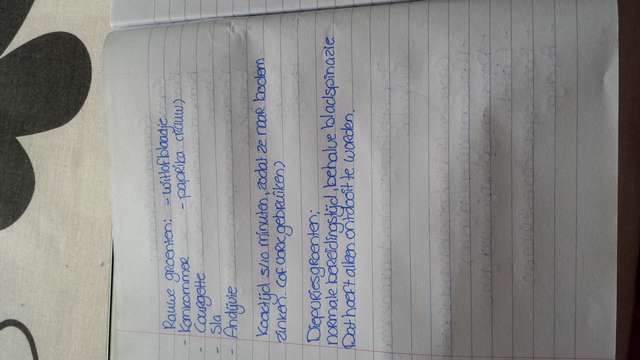 Rauwe groenten: - witlofblaadje
- Komkommer - paprika (rauw)
- Courgette
- Sla
- Andijvie
Kooktijd 5/10 minuten, zodat ze naar bodem
zinken. (of vork gebruiken)
Diepvriesgroenten:
normale bereidingstijd, behalve bladspinazie
Dat heeft alleen ontdooit te worden.